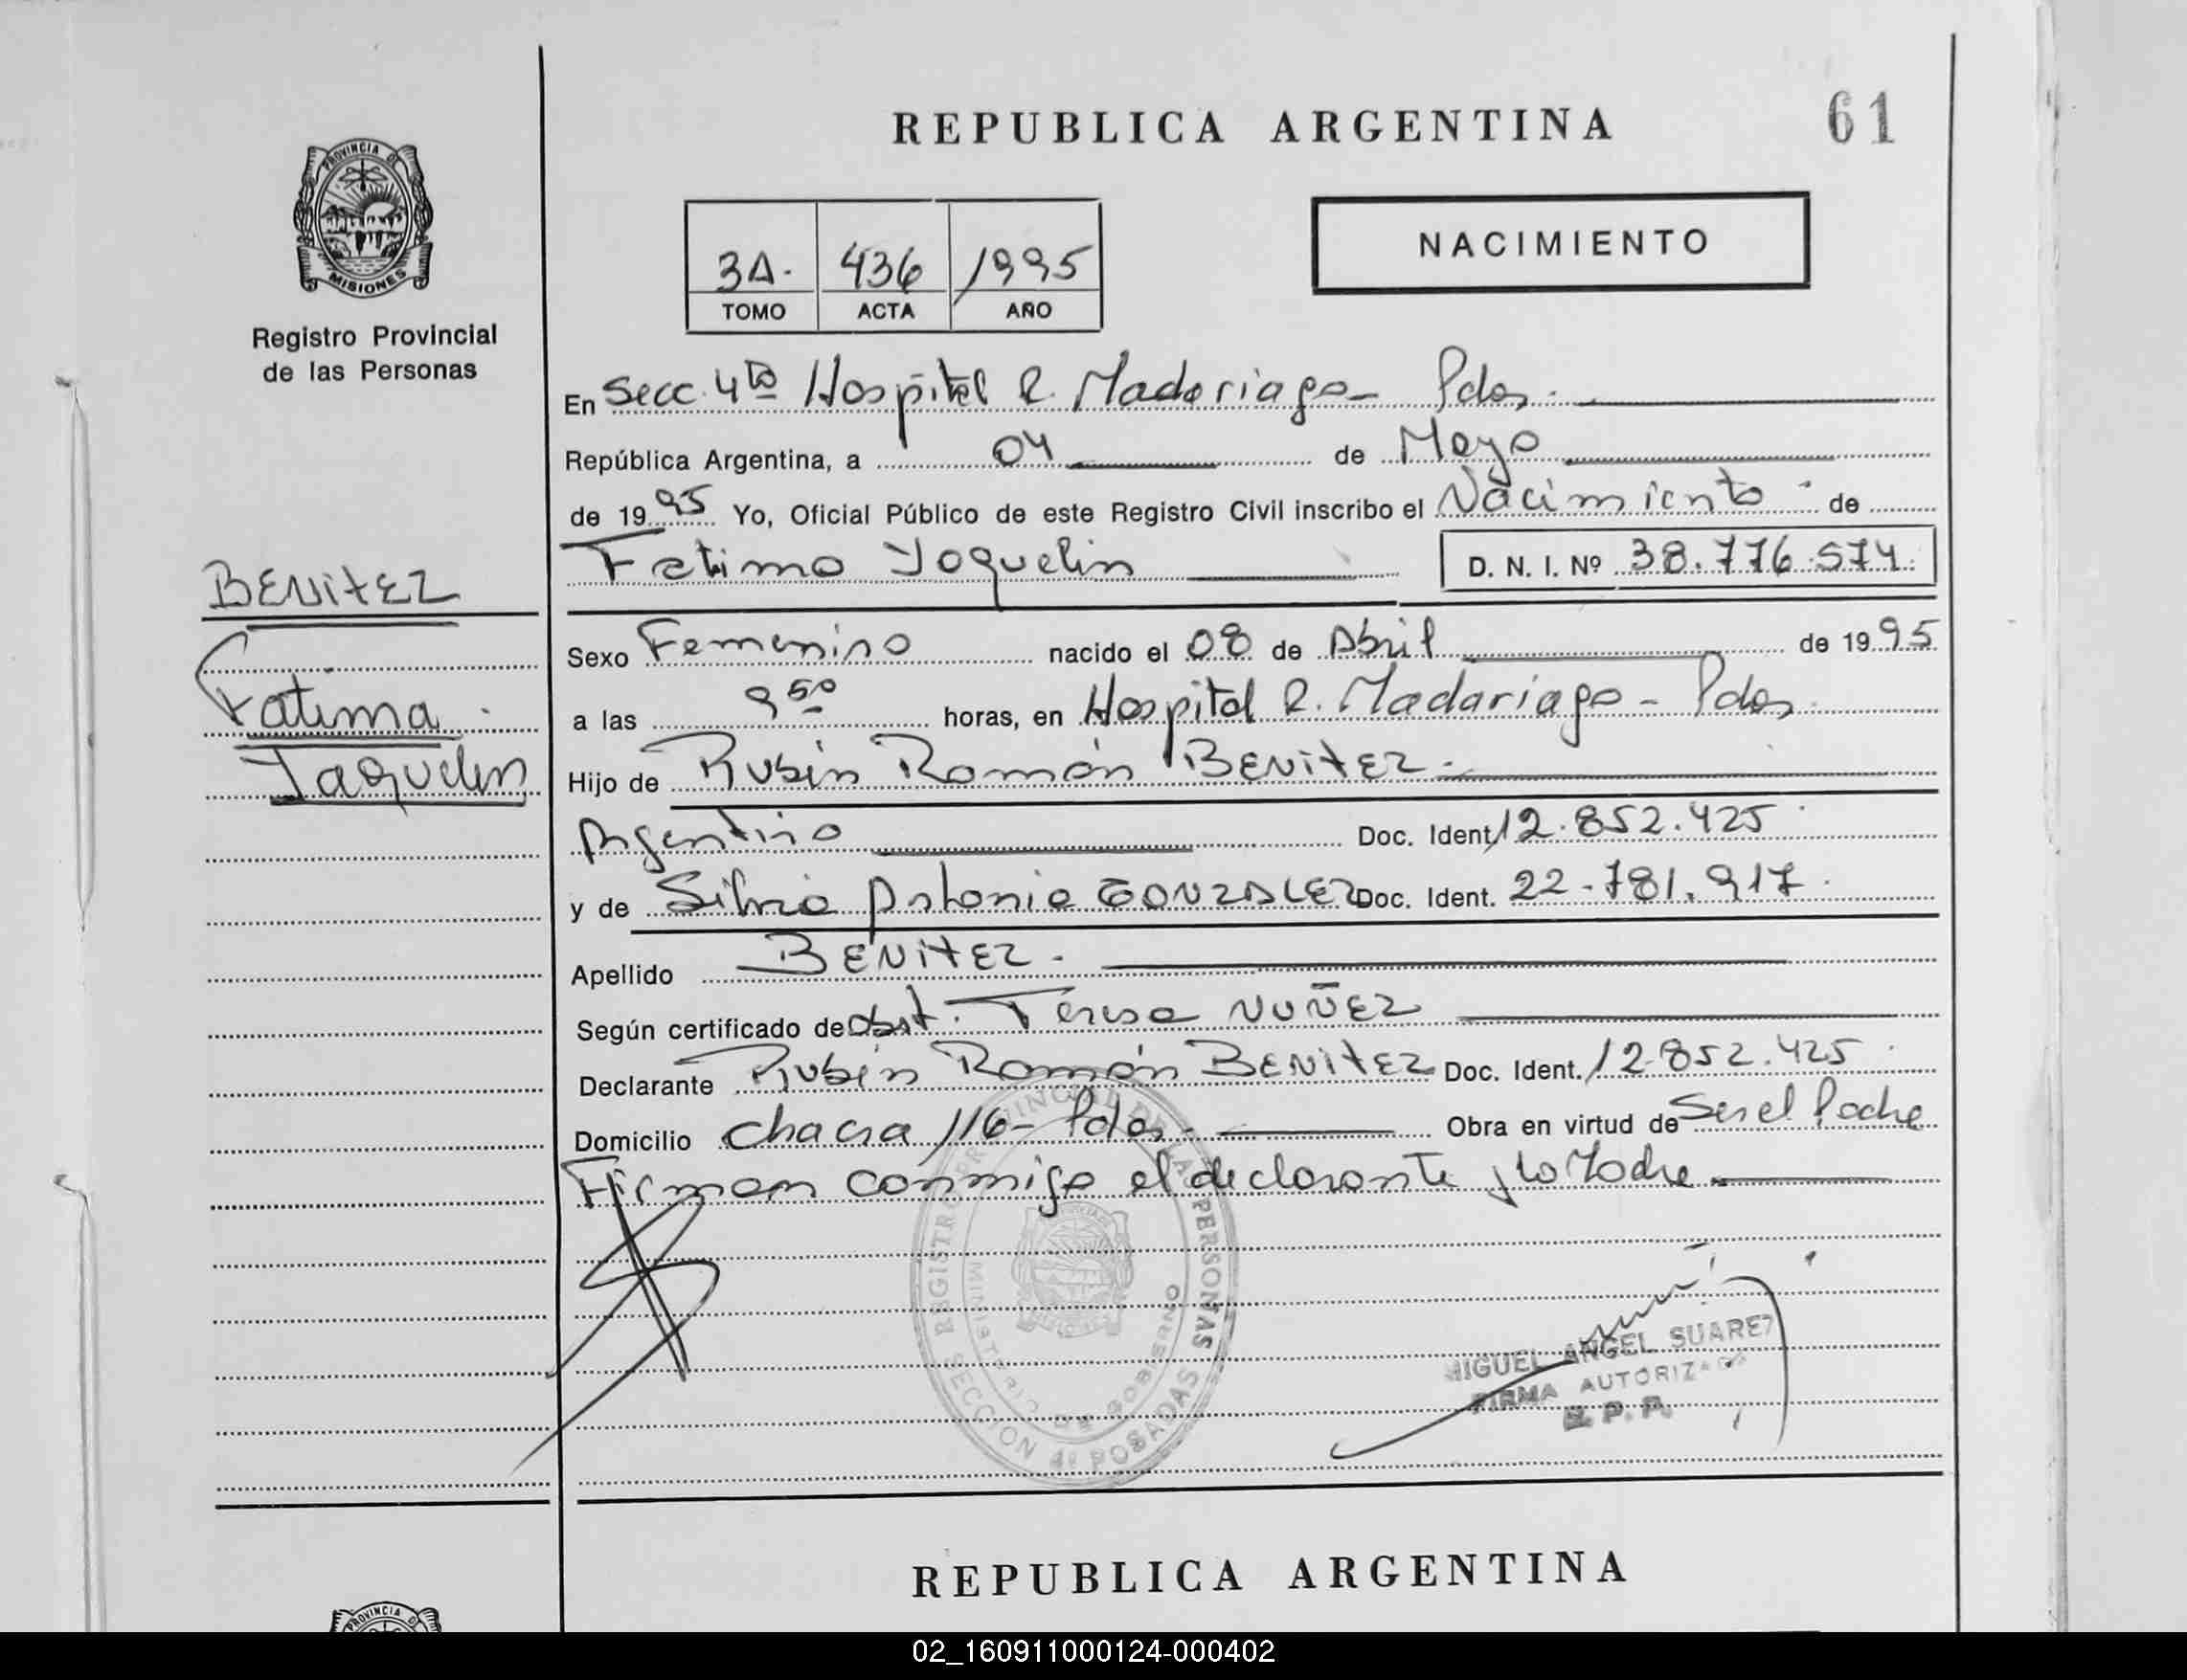 REPUBLICA ARGENTINA
61
PROVINCIA DE
MISIONES
Registro Provincial
de las Personas
3A. 436 1995
TOMO ACTA AÑO
NACIMIENTO
En Secc. 4ta Hospital R. Madariaga - Pdas.
República Argentina, a 04 de Mayo
de 1995 Yo, Oficial Público de este Registro Civil inscribo el Nacimiento de
Fatima Yaquelin D. N. I. Nº 38.776.574.
BENITEZ
Fatima
Yaquelin
Sexo Femenino nacido el 08 de Abril de 1995
a las 9 50 horas, en Hospital R. Madariaga - Pdas.
Hijo de Rubén Ramón BENITEZ.
Argentino Doc. Ident. 12.852.425
y de Silvia Antonia GONZALEZ Doc. Ident. 22.781.917.
Apellido BENITEZ.
Según certificado de Obst. Teresa NUÑEZ
Declarante Rubén Ramón BENITEZ Doc. Ident. 12.852.425
Domicilio Chacra 116 - Pdas. Obra en virtud de Ser el Padre
Firman conmigo el declarante y la Madre
REGISTRO PROVINCIAL DE LAS PERSONAS
MINISTERIO DE GOBIERNO
SECCION 4ª POSADAS
MIGUEL ANGEL SUAREZ
FIRMA AUTORIZADA
R. P. P.
REPUBLICA ARGENTINA
PROVINCIA DE
02_160911000124-000402